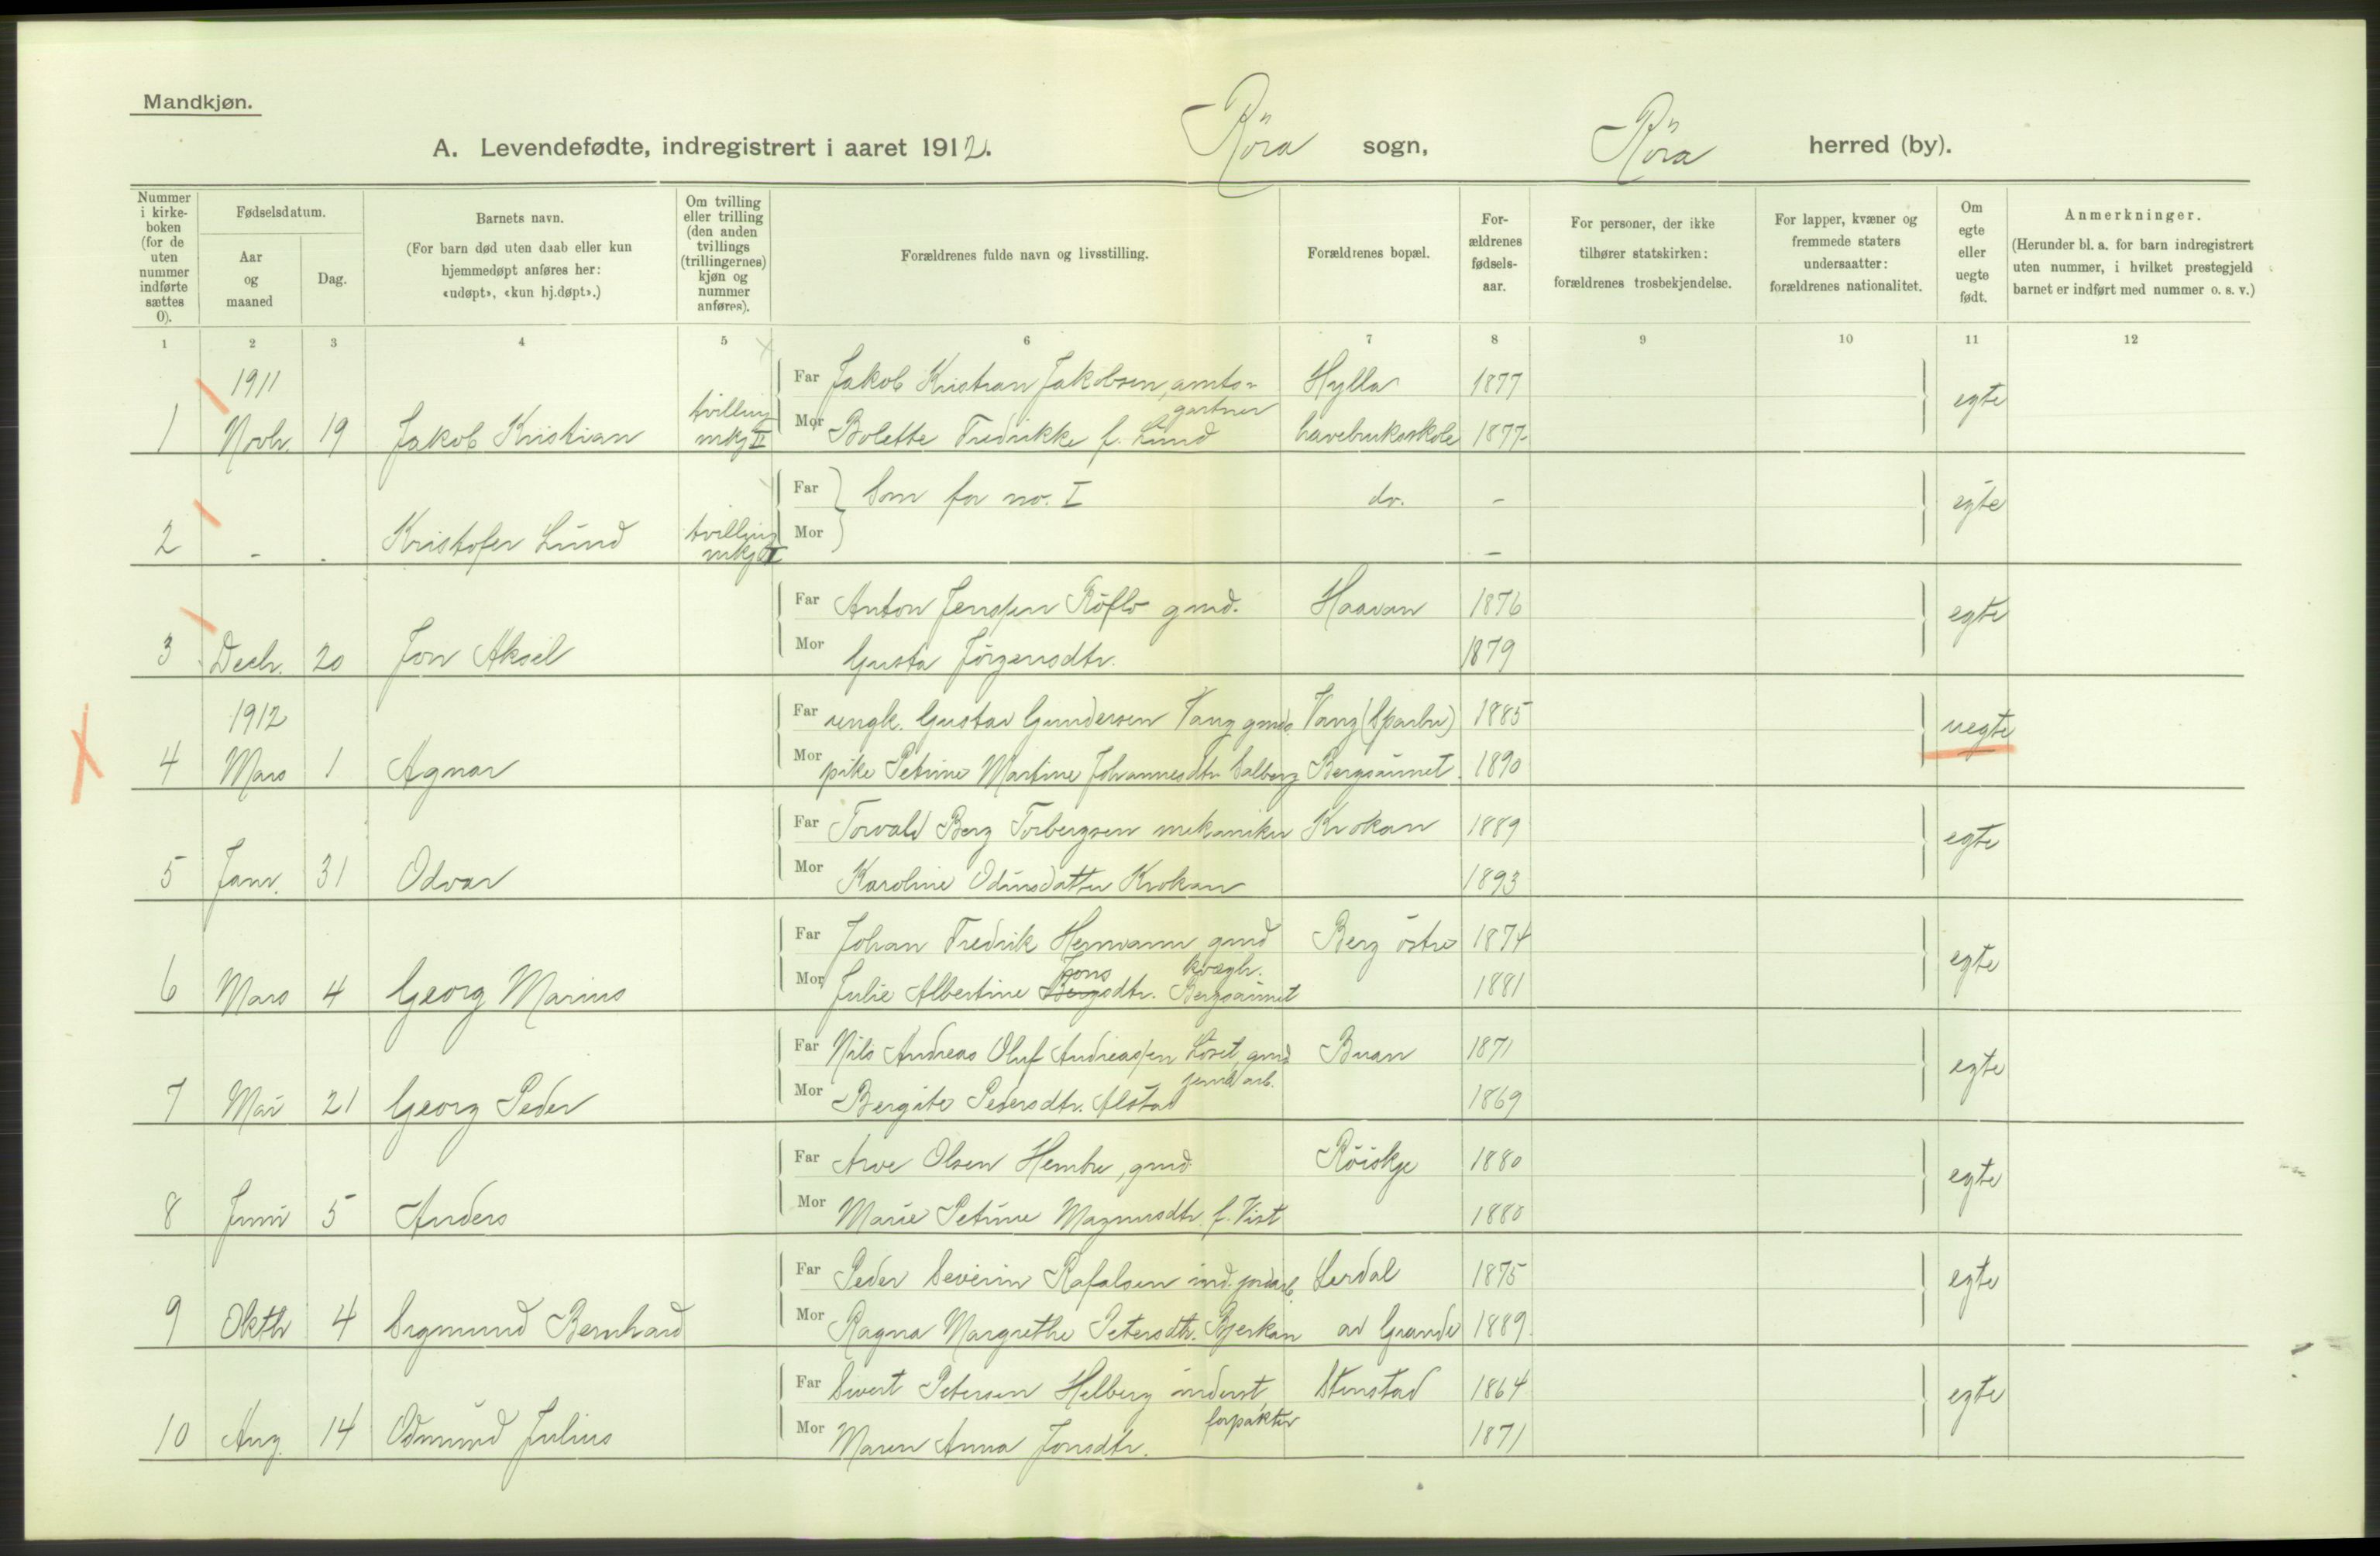 Mandkjøn.
A. Levendefødte, indregistrert i aaret 1912. Röra sogn, Röra herred (by).
Nummer i kirke-boken (for de uten nummer indførte sættes 0).
Fødselsdatum.
Aar og maaned
Dag.
Barnets navn.
(For barn død uten daab eller kun hjemmedøpt anføres her: «udøpt», «kun hj.døpt».)
Om tvilling eller trilling (den anden tvillings (trillingernes) kjøn og nummer anføres).
Forældrenes fulde navn og livsstilling.
Forældrenes bopæl.
For-ældrenes fødsels-aar.
For personer, der ikke tilhører statskirken: forældrenes trosbekjendelse.
For lapper, kvæner og fremmede staters undersaatter: forældrenes nationalitet.
Om egte eller uegte født.
Anmerkninger.
(Herunder bl. a. for barn indregistrert uten nummer, i hvilket prestegjeld barnet er indført med nummer o. s. v.)
1 2 3 4 5 6 7 8 9 10 11 12
1911 Far Jakob Kristian Jakobsen, amts- Hylla 1877 egte
gartner
1 Novbr. 19 Jakob Kristian tvilling mkj II Mor Bolette Fredrikke f. Lund havebruksskole 1877
Far Som for no. I do. - egte
2 - - Kristofer Lund tvilling mkj I Mor -
Far Anton Jenssen Röflo gmd. Haavan 1876 egte
3 Decbr. 20 Jon Aksel Mor Gusta Jörgensdtr. 1879
1912 Far ungk. Gustav Gundersen Vang gmds. Vang (Sparbu) 1885 uegte
4 Mars 1 Agnar Mor pike Petrine Martine Johannesdtr Salberg Bergsaunet 1890
Far Torvald Berg Torbergsen mekaniker Krokan 1889 egte
5 Janr. 31 Odvar Mor Karoline Odinsdatter Krokan 1893
Far Johan Fredrik Hermann gmd Berg östre 1874 egte
Jons
6 Mars 4 Georg Marius Mor Julie Albertine Bergsdtr. Bergsaunet 1881
Far Nils Andreas Oluf Andreassen Löset, gmd Buan 1871 egte
7 Mai 21 Georg Peder Mor Bergite Pedersdtr. Alstad 1869
Far Arve Olsen Hembre, gmd Röiskje 1880 egte
8 Juni 5 Anders Mor Marie Petrine Magnusdtr. f. Vist 1880
Far Peder Severin Rafalsen ind. jordarb. Lerdal 1875 egte
9 Oktbr 4 Sigmund Bernhard Mor Ragna Margrethe Petersdtr. Bjerkan av Grande 1889
Far Sivert Petersen Helberg inderst, Stenstad 1864 egte
forpakter
10 Aug. 14 Odmund Julius Mor Maren Anna Jonsdtr. 1871